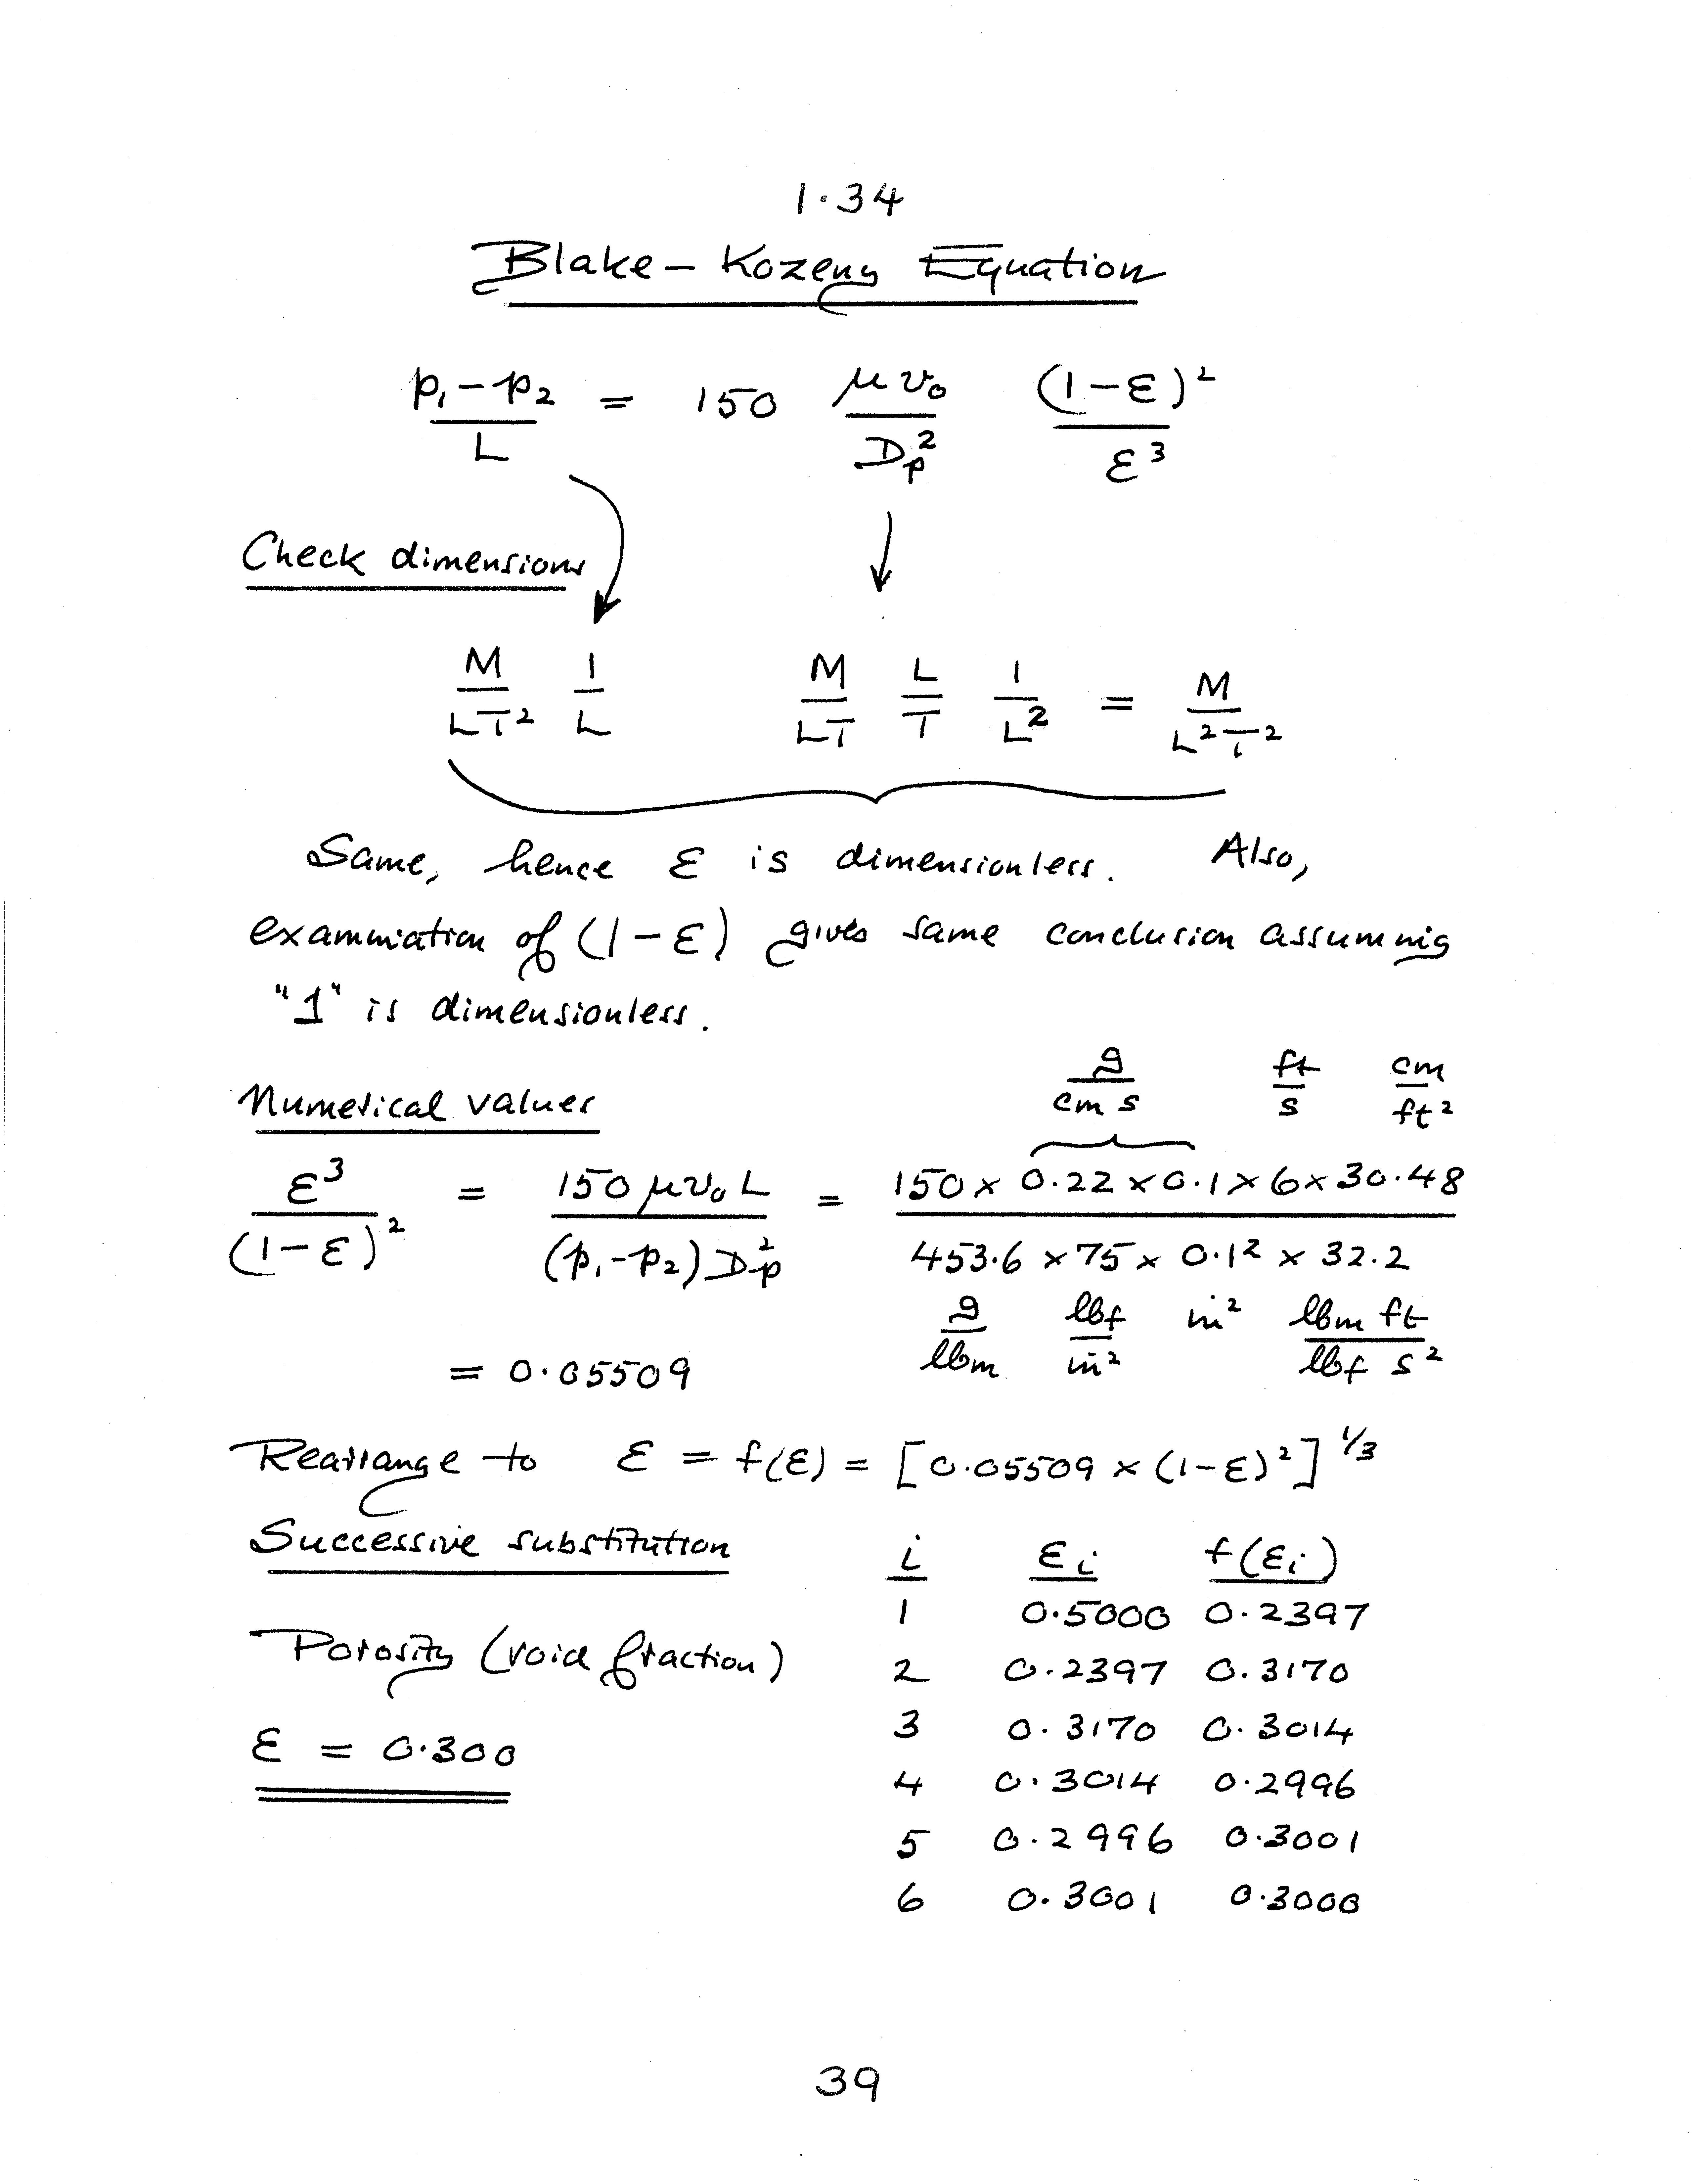 1.34
Blake-Kozeny Equation
(p₁-p₂)/L = 150 μv₀/Dₚ² (1-ε)²/ε³
Check dimensions
M/LT² 1/L M/LT L/T 1/L² = M/L²T²
Same, hence ε is dimensionless. Also,
examination of (1-ε) gives same conclusion assuming
"1" is dimensionless.
g/cm s ft/s cm/ft²
Numerical values
ε³/(1-ε)² = 150μv₀L/(p₁-p₂)Dₚ² = 150 x 0.22 x 0.1 x 6 x 30.48/453.6 x 75 x 0.1² x 32.2
g/lbm lbf/in² in² lbm ft/lbf s²
= 0.05509
Rearrange to ε = f(ε) = [0.05509 x (1-ε)²]^1/3
Successive substitution
i εi f(εi)
1 0.5000 0.2397
Porosity (void fraction)
2 0.2397 0.3170
3 0.3170 0.3014
ε = 0.300
4 0.3014 0.2996
5 0.2996 0.3001
6 0.3001 0.3000
39